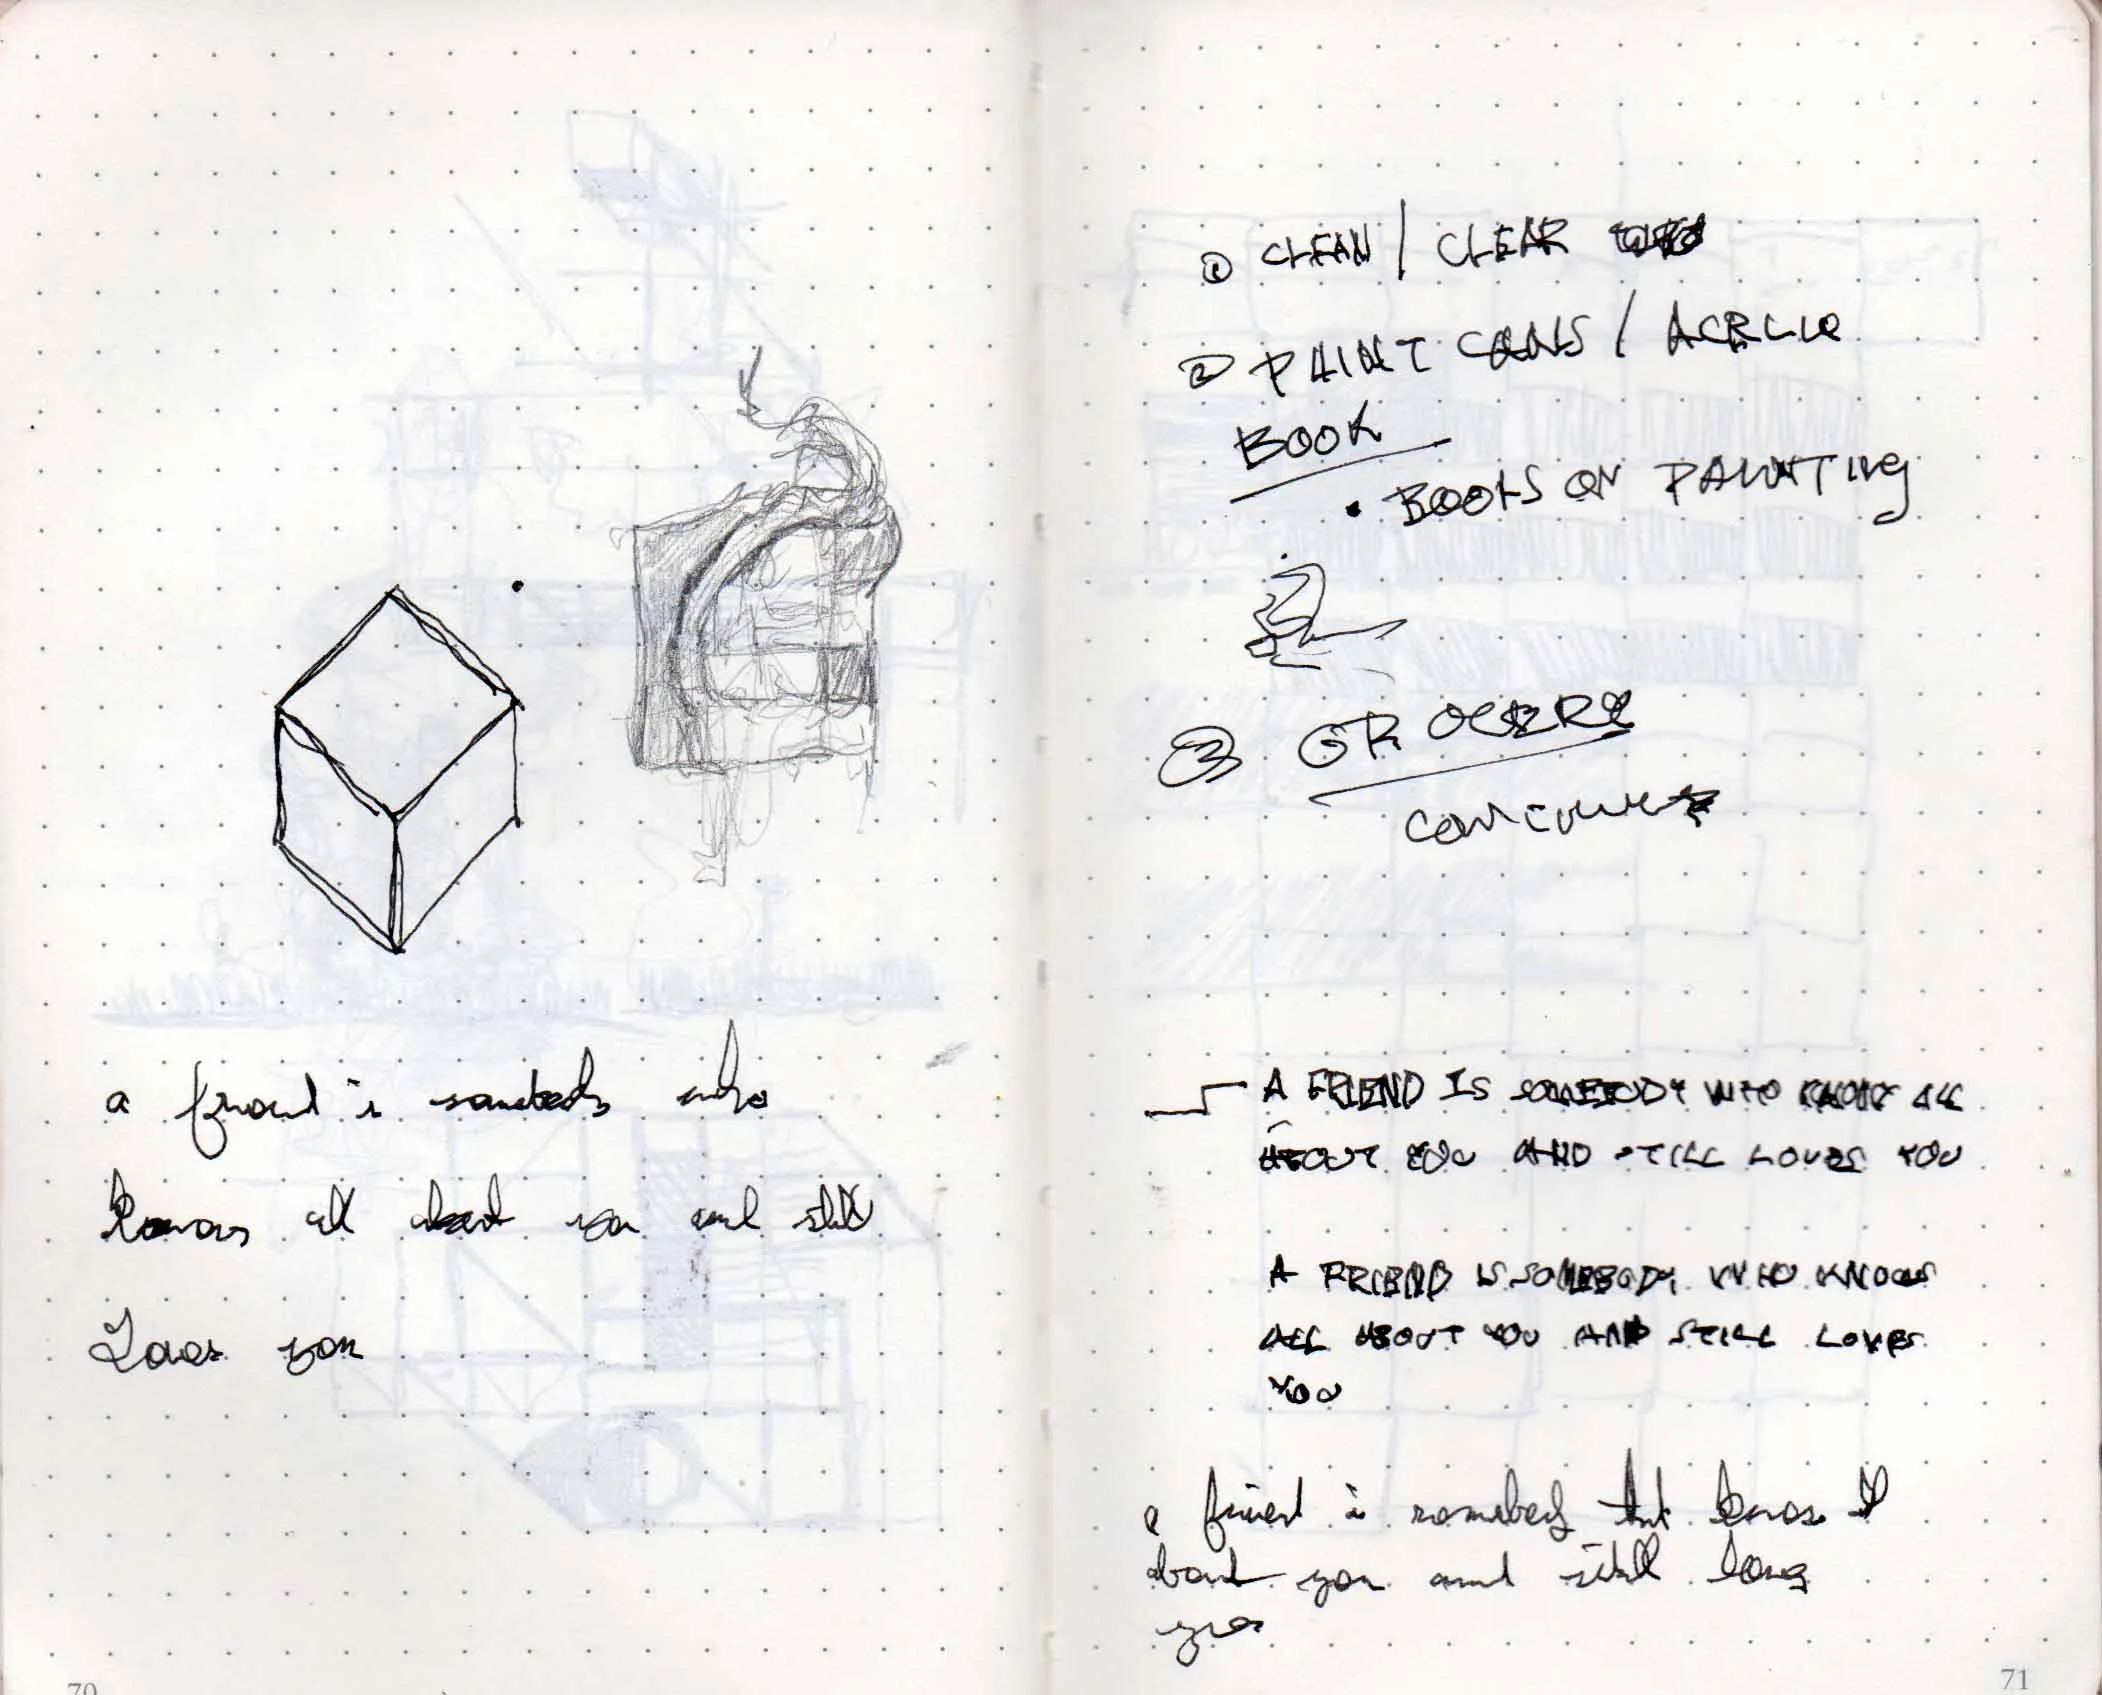 a friend is somebody who
knows all about you and still
Loves you
70
① CLEAN / CLEAR
② PAINT CANS / ACRLIC
BOOK
• BOOKS ON PAINTING
③ GROCERY
A FRIEND IS SOMEBODY WHO KNOWS ALL
ABOUT YOU AND STILL LOVES YOU
A FRIEND IS SOMEBODY WHO KNOWS
ALL ABOUT YOU AND STILL LOVES
YOU
a friend is somebody that knows
about you and still
you
71